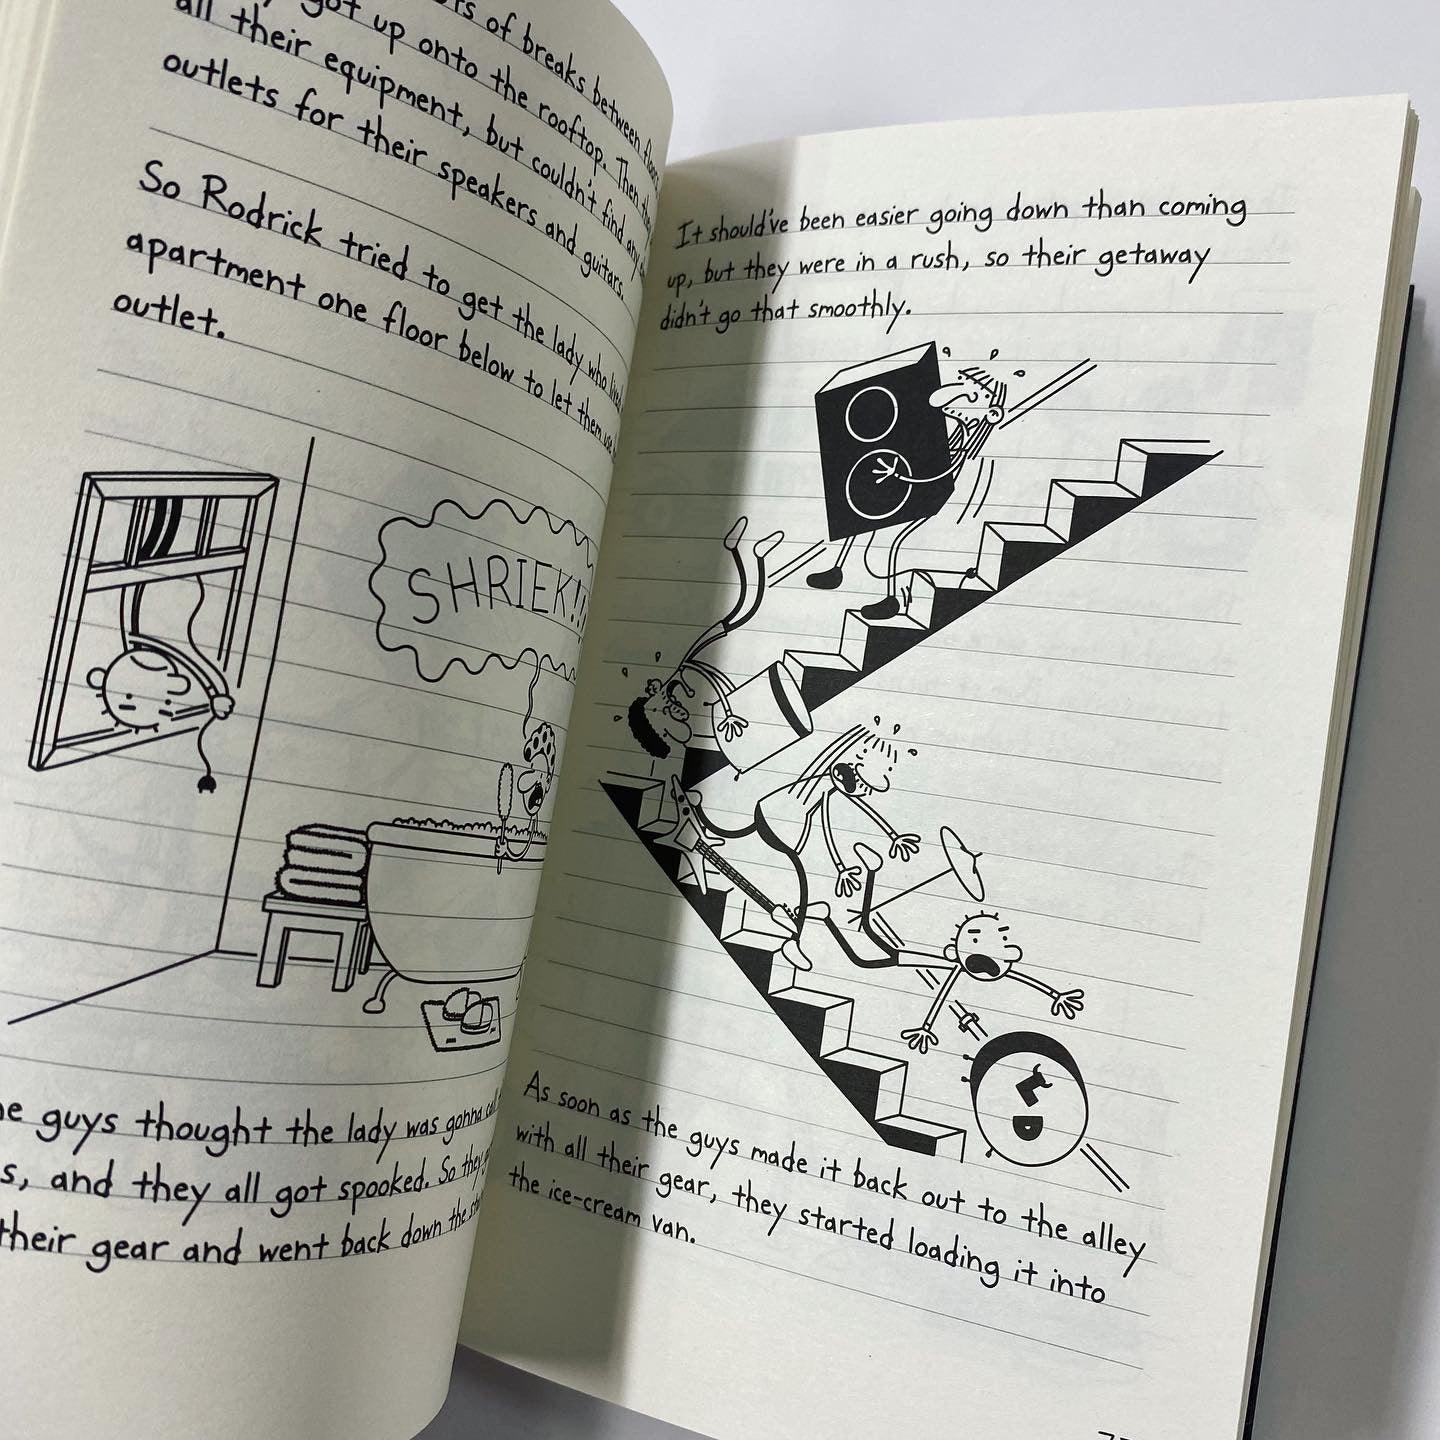 of breaks between floors
got up onto the rooftop. Then they
all their equipment, but couldn't find any
outlets for their speakers and guitars.
So Rodrick tried to get the lady who lived
apartment one floor below to let them use
outlet.
SHRIEK!!
guys thought the lady was gonna call
and they all got spooked. So they
their gear and went back down the
It should've been easier going down than coming
up, but they were in a rush, so their getaway
didn't go that smoothly.
As soon as the guys made it back out to the alley
with all their gear, they started loading it into
the ice-cream van.